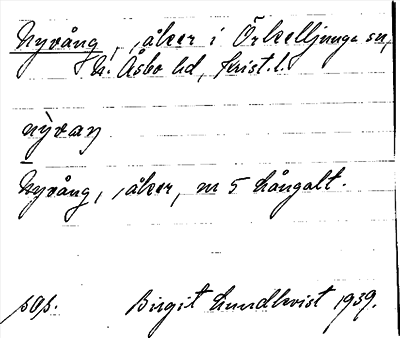 Nyvång, åker i Örkelljunga sn,
N. Åsbo hd, Krist. l.
nỳvaŋ
Nyvång, åker, m 5 Långalt.
sos. Birgit Lundkvist 1939.